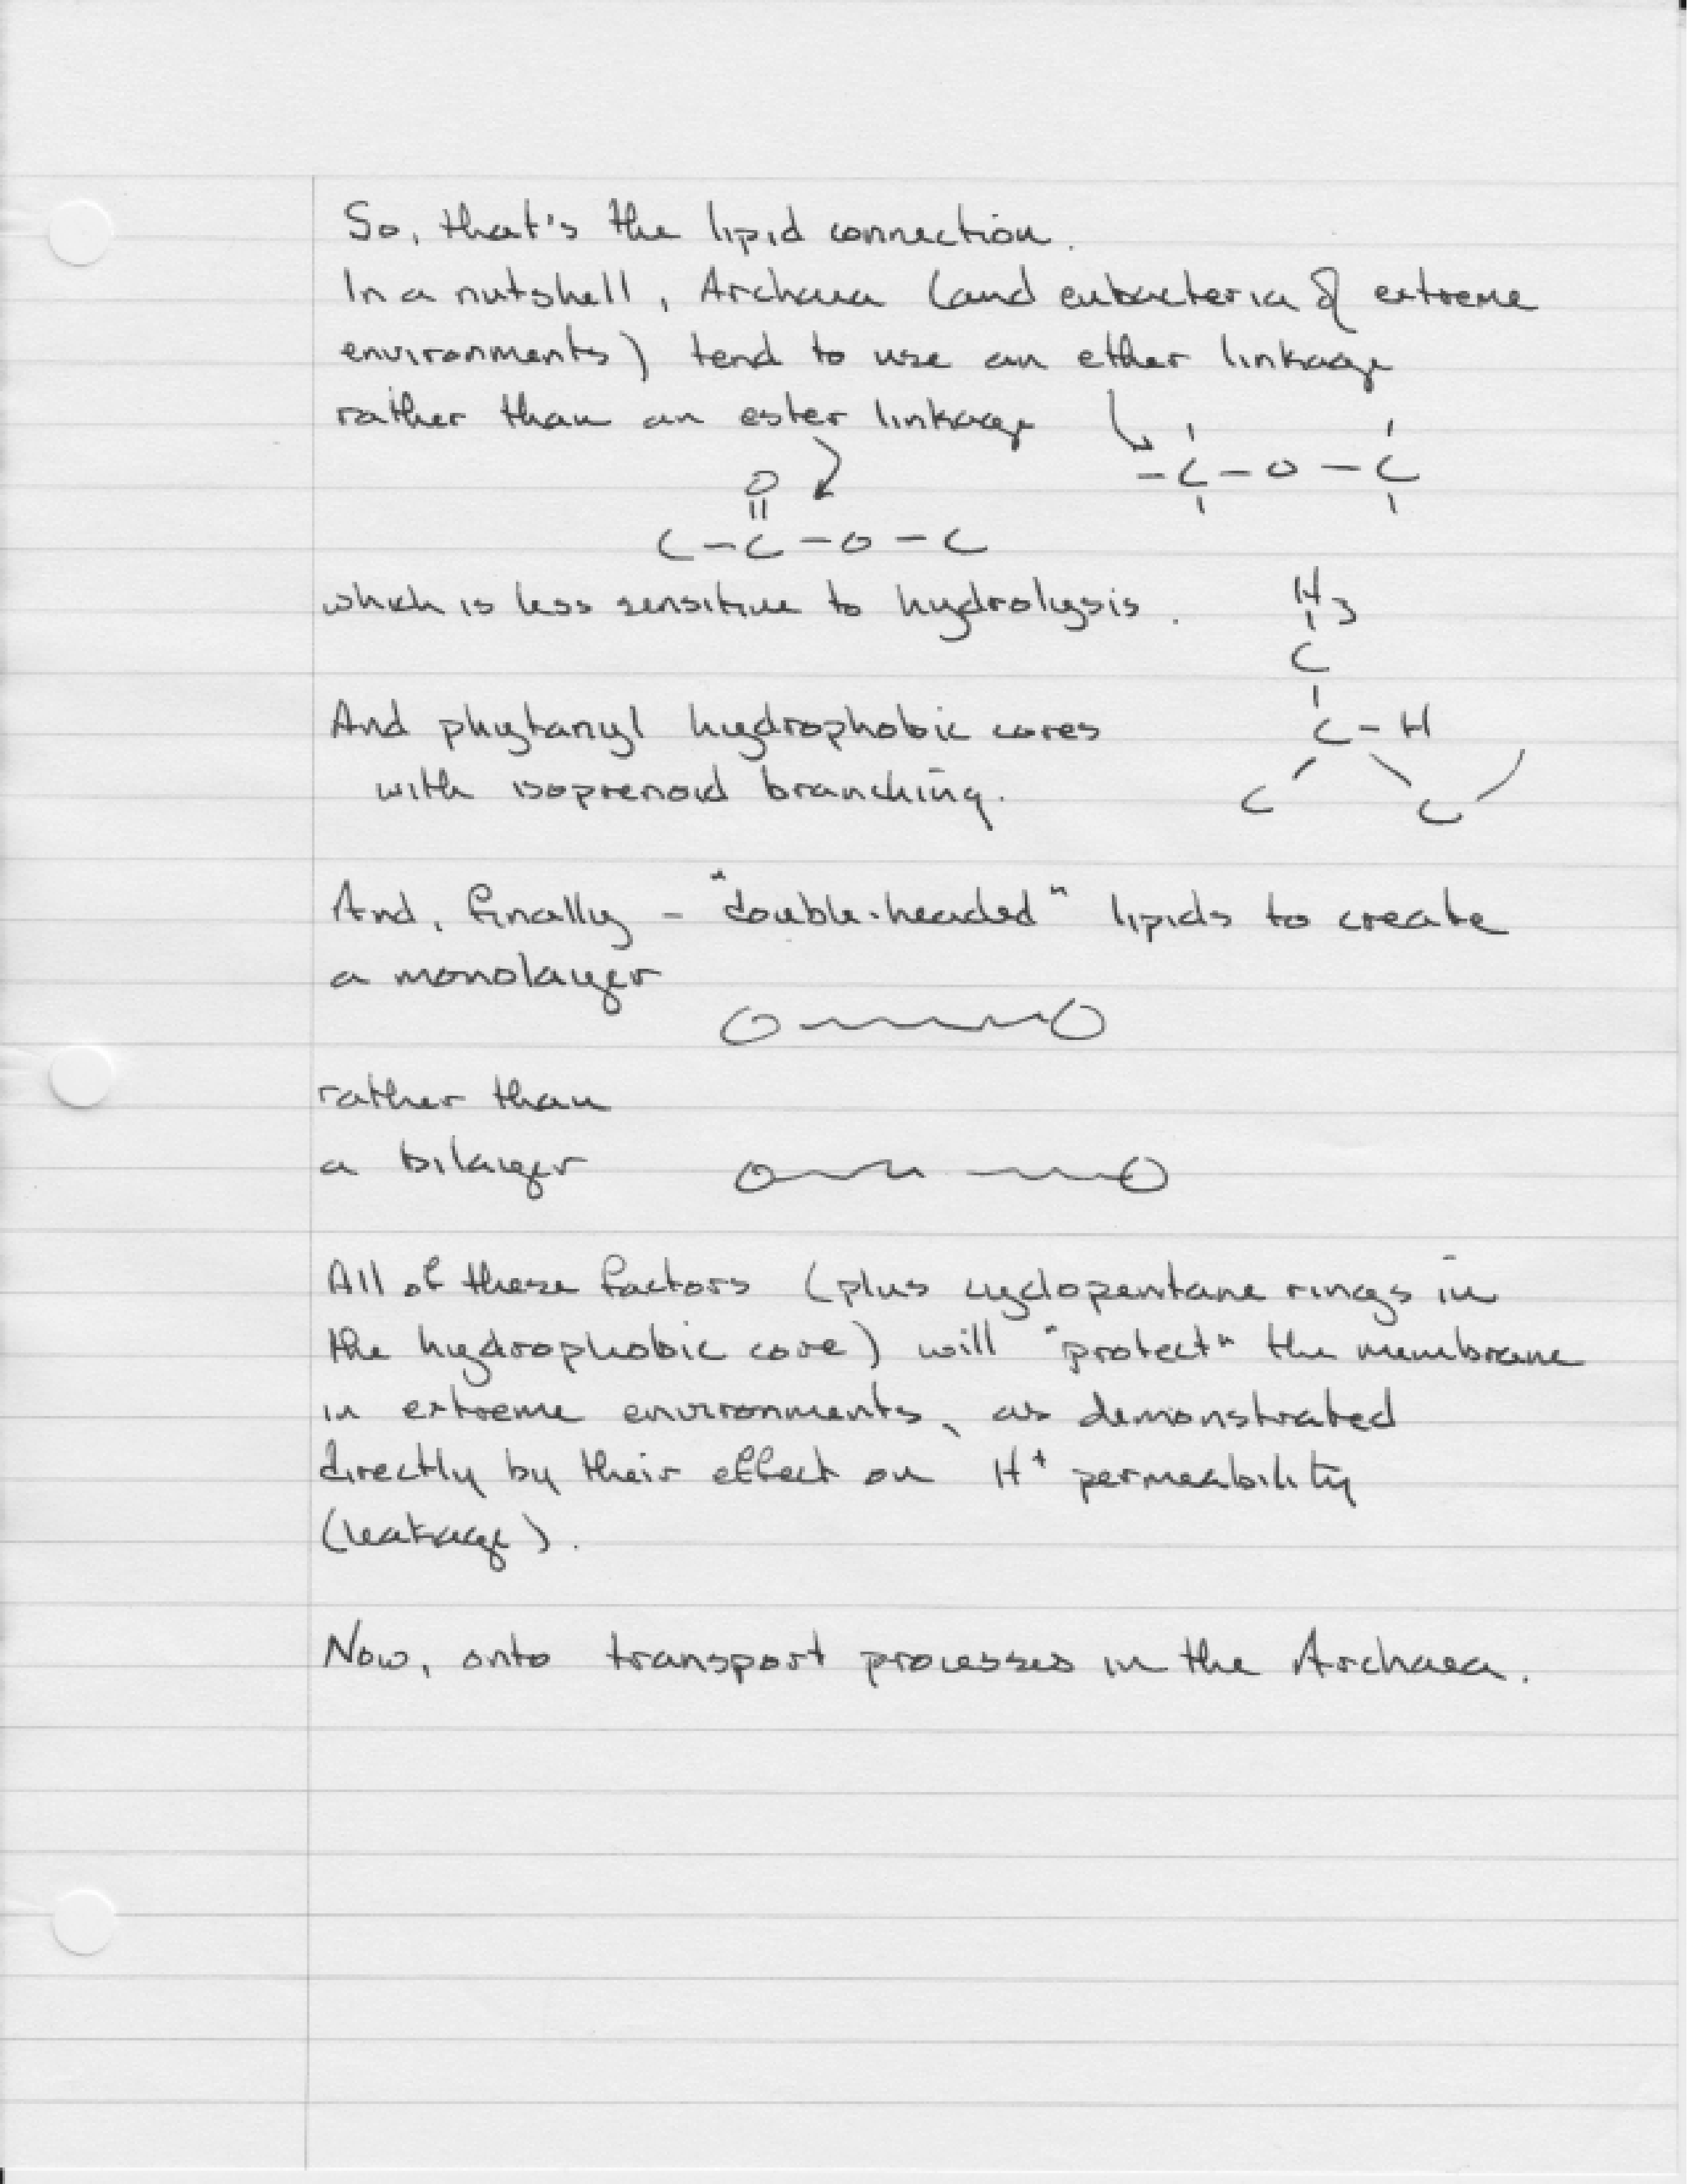 So, that's the lipid connection.
In a nutshell, Archaea (and eubacteria of extreme
environments) tend to use an ether linkage
rather than an ester linkage
- C - O - C
O
C - C - O - C
which is less sensitive to hydrolysis.
H3
C
And phytanyl hydrophobic cores
C - H
with isoprenoid branching.
C C
And, finally - "double-headed" lipids to create
a monolayer
rather than
a bilayer
All of these factors (plus cyclopentane rings in
the hydrophobic core) will "protect" the membrane
in extreme environments, as demonstrated
directly by their effect on H+ permeability
(leakage).
Now, onto transport processes in the Archaea.